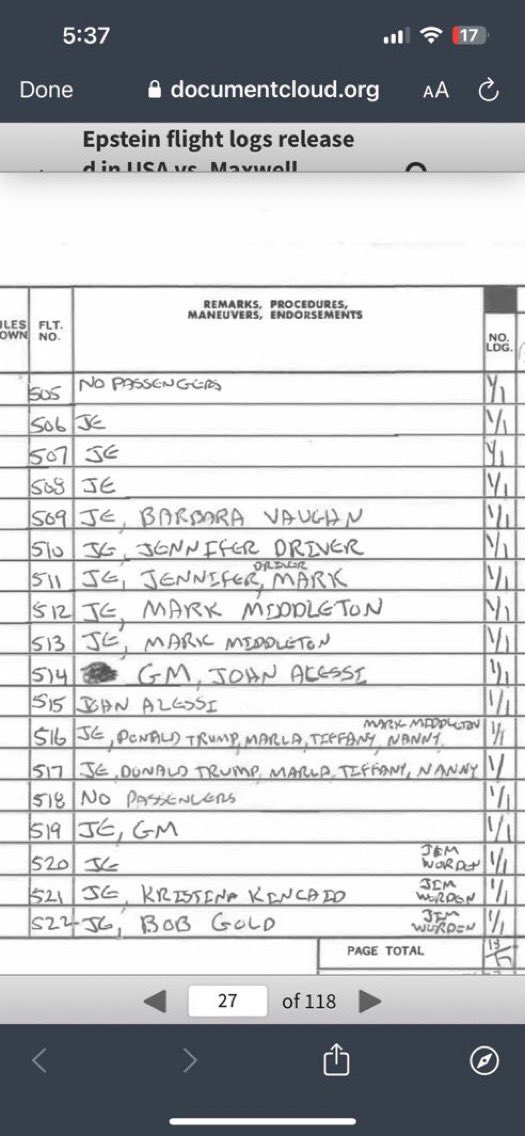 5:37
17
Done
documentcloud.org
AA
Epstein flight logs release
d in USA vs. Maxwell
ILES OWN
FLT. NO.
REMARKS, PROCEDURES,
MANEUVERS, ENDORSEMENTS
NO. LDG.
505 NO PASSENGERS 1/1
506 JE 1/1
507 JE 1/1
508 JE 1/1
509 JE, BARBARA VAUGHN 1/1
510 JE, JENNIFER DRIVER 1/1
511 JE, JENNIFER DRIVER, MARK 1/1
512 JE, MARK MIDDLETON 1/1
513 JE, MARK MIDDLETON 1/1
514 GM, JOHN ALESSI 1/1
515 JOHN ALESSI 1/1
516 JE, DONALD TRUMP, MARLA, TIFFANY, NANNY, MARK MIDDLETON 1/1
517 JE, DONALD TRUMP, MARLA, TIFFANY, NANNY 1/
518 NO PASSENGERS 1/1
519 JE, GM 1/1
520 JE JIM WORDEN 1/1
521 JE, KRISTINA KINCAID JIM WORDEN 1/1
522 JE, BOB GOLD JIM WORDEN 1/1
PAGE TOTAL
27 of 118